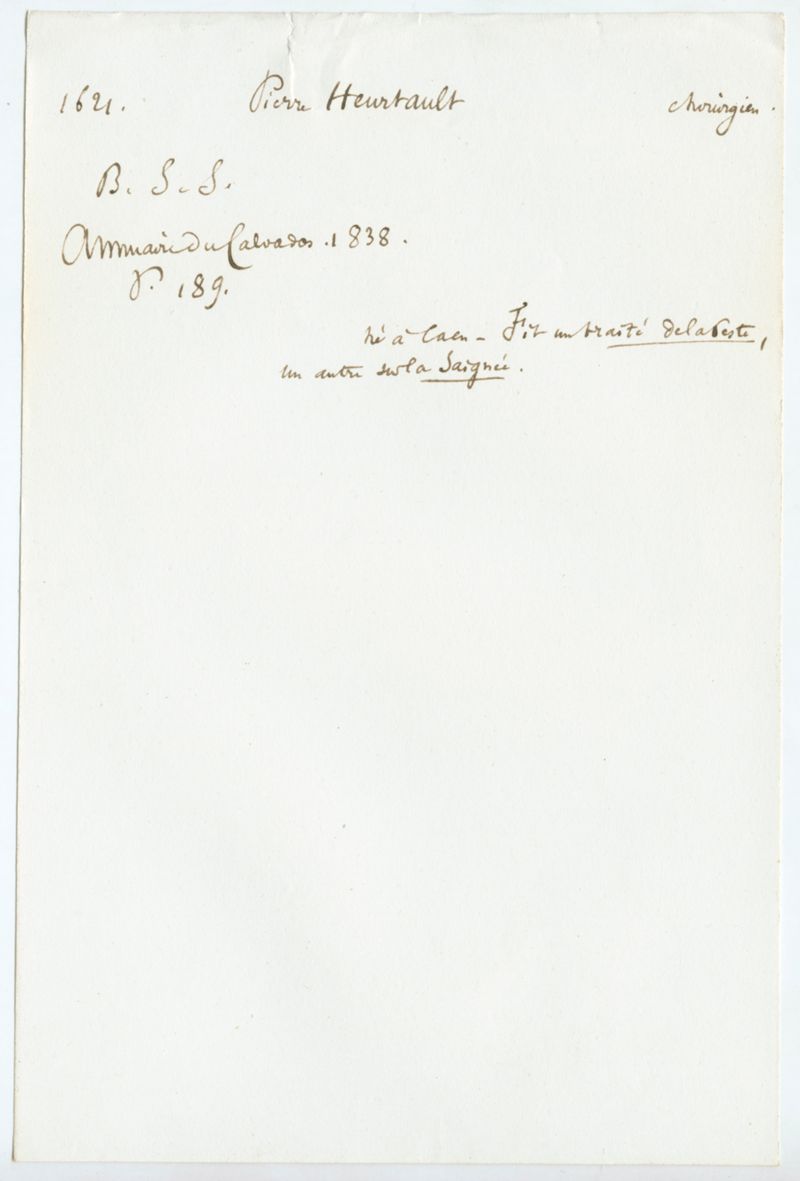 1621. Pierre Heurtault chirurgien.
B. S. S.
Annuaire du Calvados. 1838.
P. 189.
né à Caen - Fit un traité de la Peste,
un autre sur la Saignée.